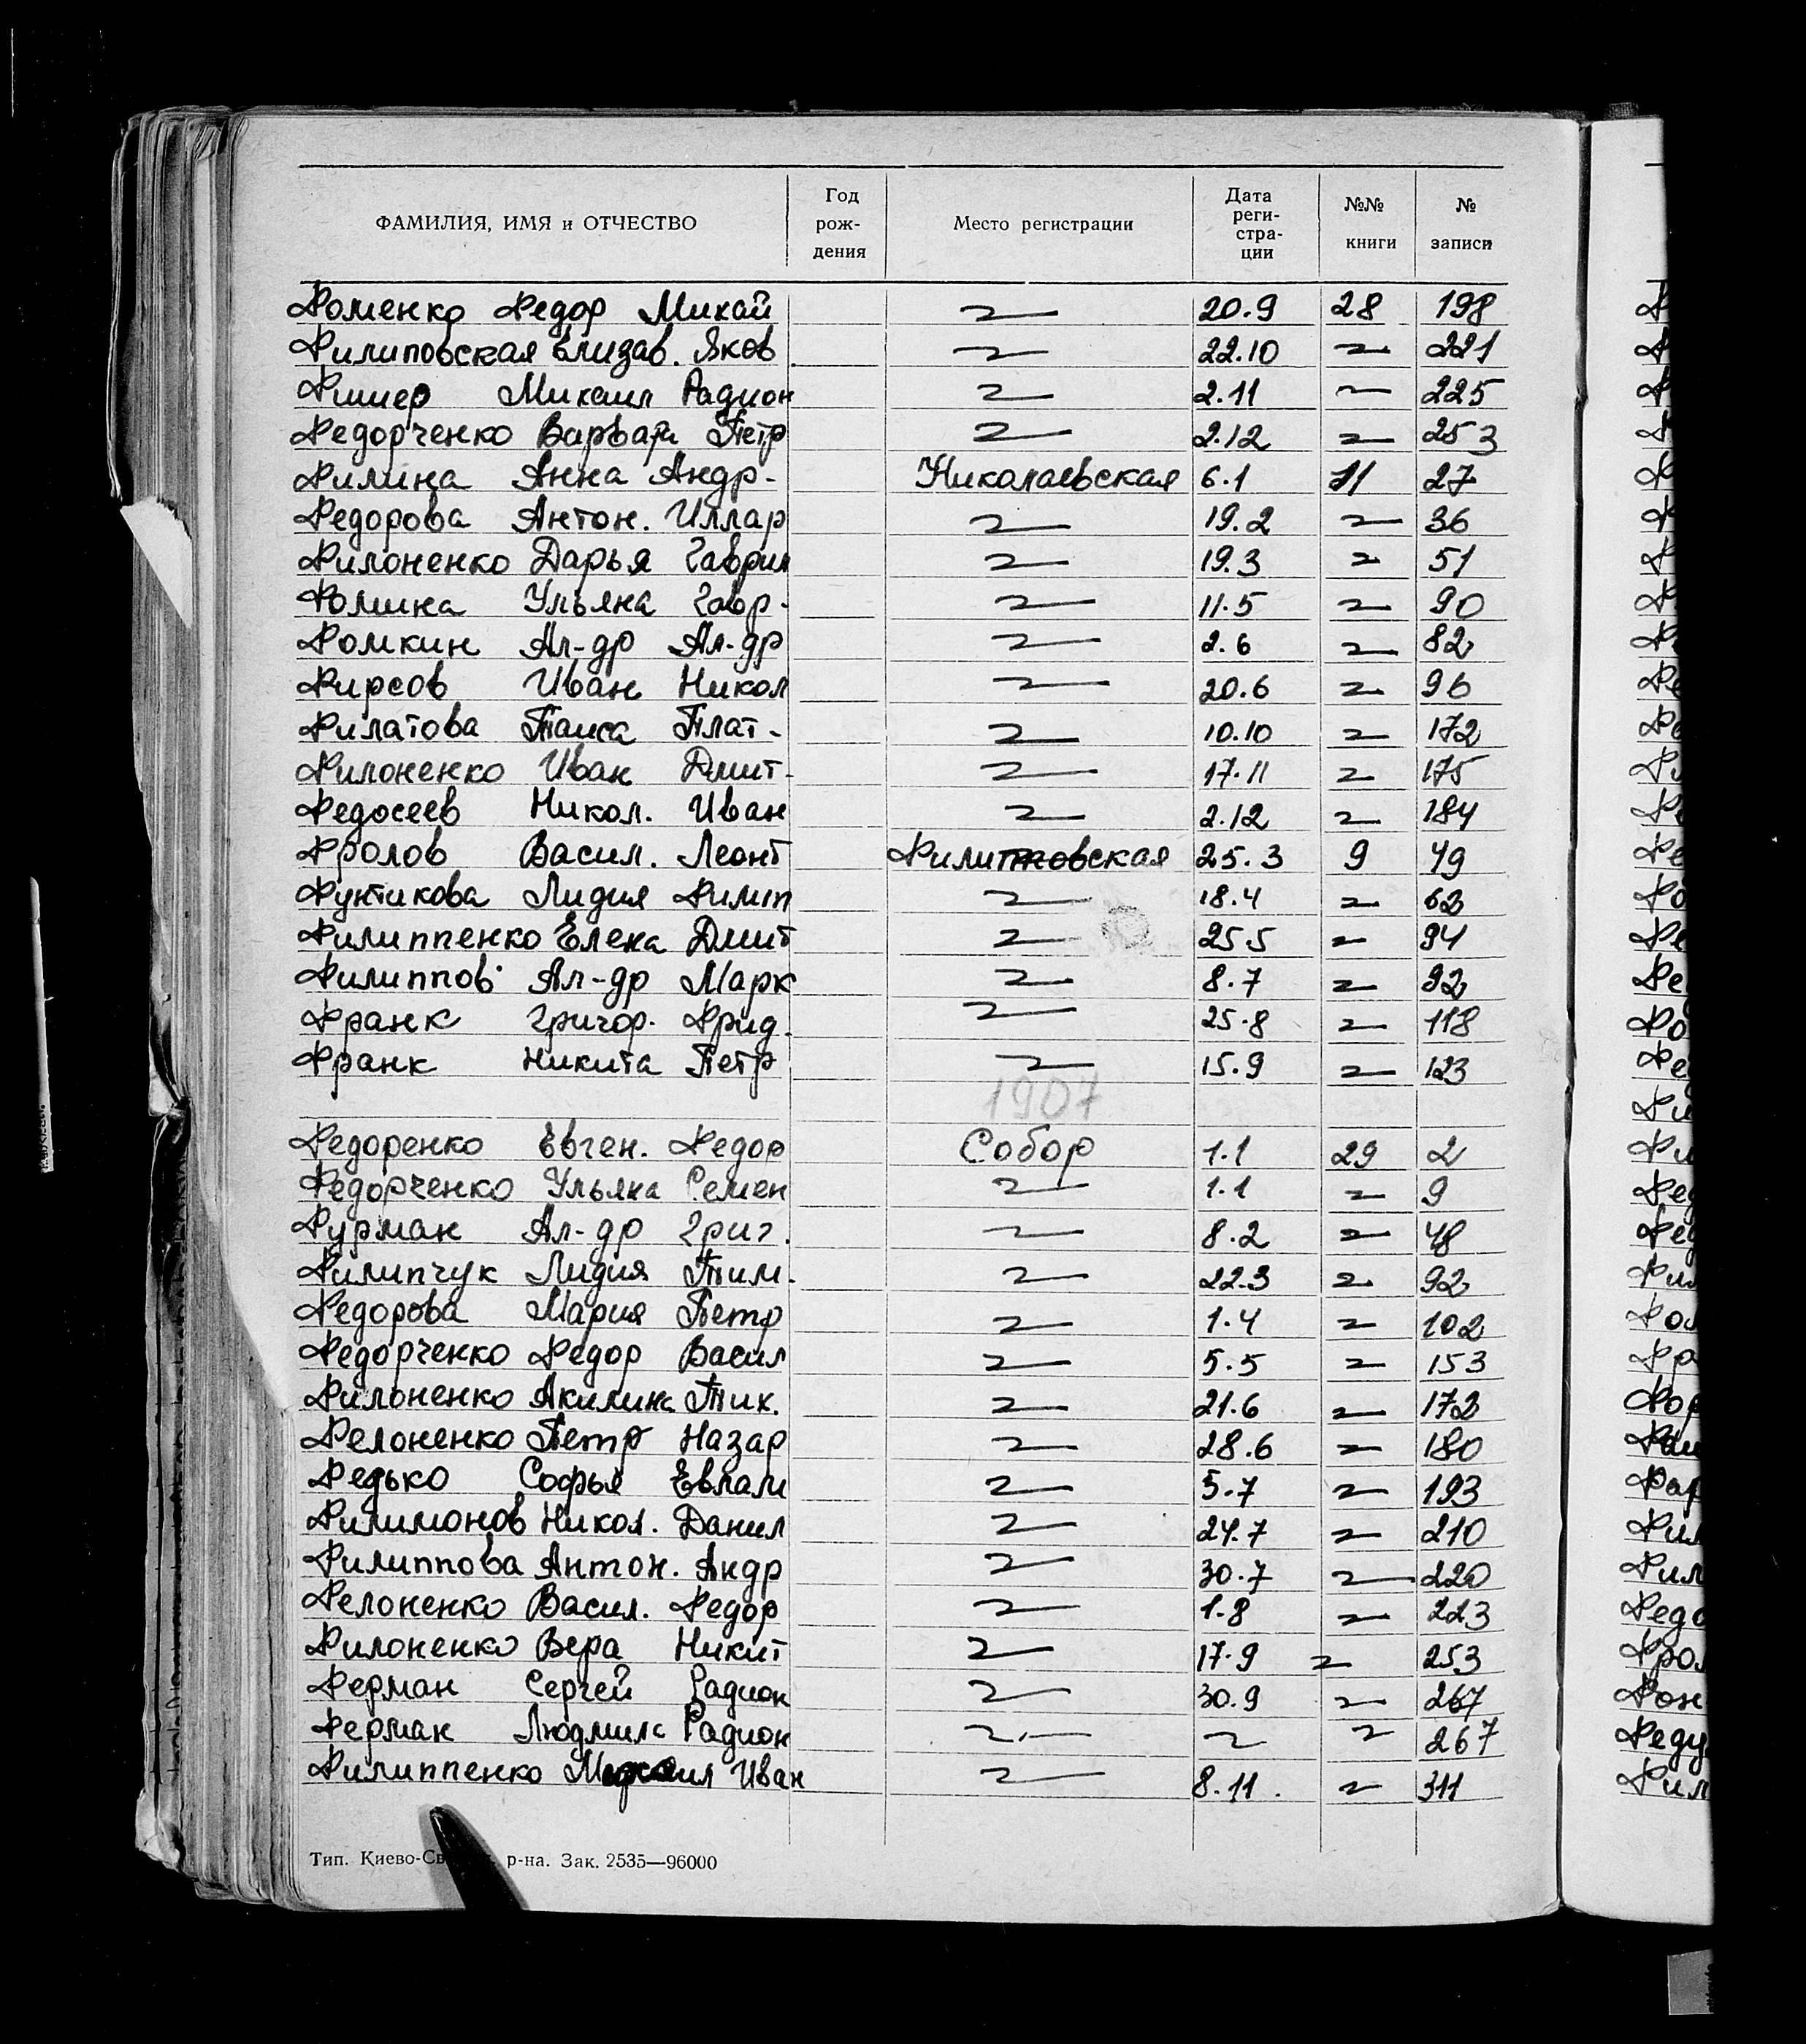 ФАМИЛИЯ, ИМЯ и ОТЧЕСТВО Год рождения Место регистрации Дата реги-стра-ции №№ книги № записи
Фоменко Федор Михай 〃 20.9 28 198
Филиповская Елизав. Яков 〃 22.10 〃 221
Фишер Михаил Радион 〃 2.11 〃 225
Федорченко Варвара Петр 〃 2.12 〃 253
Филина Анна Андр- Николаевская 6.1 11 27
Федорова Антон. Иллар 〃 19.2 〃 36
Филоненко Дарья Гаврил 〃 19.3 〃 51
Фомина Ульяна Гавр- 〃 11.5 〃 90
Фомкин Ал-др Ал-др 〃 2.6 〃 82
Фирсов Иван Никол 〃 20.6 〃 96
Филатова Таиса Плат- 〃 10.10 〃 172
Филоненко Иван Дмит- 〃 17.11 〃 175
Федосеев Никол. Иван 〃 2.12 〃 184
Фролов Васил. Леонт Филипповская 25.3 9 49
Фунтикова Лидия Филип 〃 18.4 〃 62
Филиппенко Елена Дмит 〃 25.5 〃 94
Филиппов Ал-др Марк 〃 8.7 〃 92
Франк Григор. Фрид. 〃 25.8 〃 118
Франк Никита Петр 〃 15.9 〃 123
1907
Федоренко Евген. Федор Собор 1.1 29 2
Федорченко Ульяна Семен 〃 1.1 〃 9
Фурман Ал-др Григ. 〃 8.2 〃 48
Филипчук Лидия Тим. 〃 22.3 〃 92
Федорова Мария Петр 〃 1.4 〃 102
Федорченко Федор Васил 〃 5.5 〃 153
Филоненко Акилина Тих. 〃 21.6 〃 172
Фелоненко Петр Назар 〃 28.6 〃 180
Федько Софья Евлами 〃 5.7 〃 193
Филимонов Никол. Данил 〃 24.7 〃 210
Филиппова Антон. Андр 〃 30.7 〃 220
Фелоненко Васил. Федор 〃 1.8 〃 223
Филоненко Вера Никит 〃 17.9 〃 253
Ферман Сергей Радион 〃 30.9 〃 267
Ферман Людмила Радион 〃 〃 〃 267
Филиппенко Михаил Иван 〃 8.11. 〃 311
Тип. Киево-Св р-на. Зак. 2535—96000